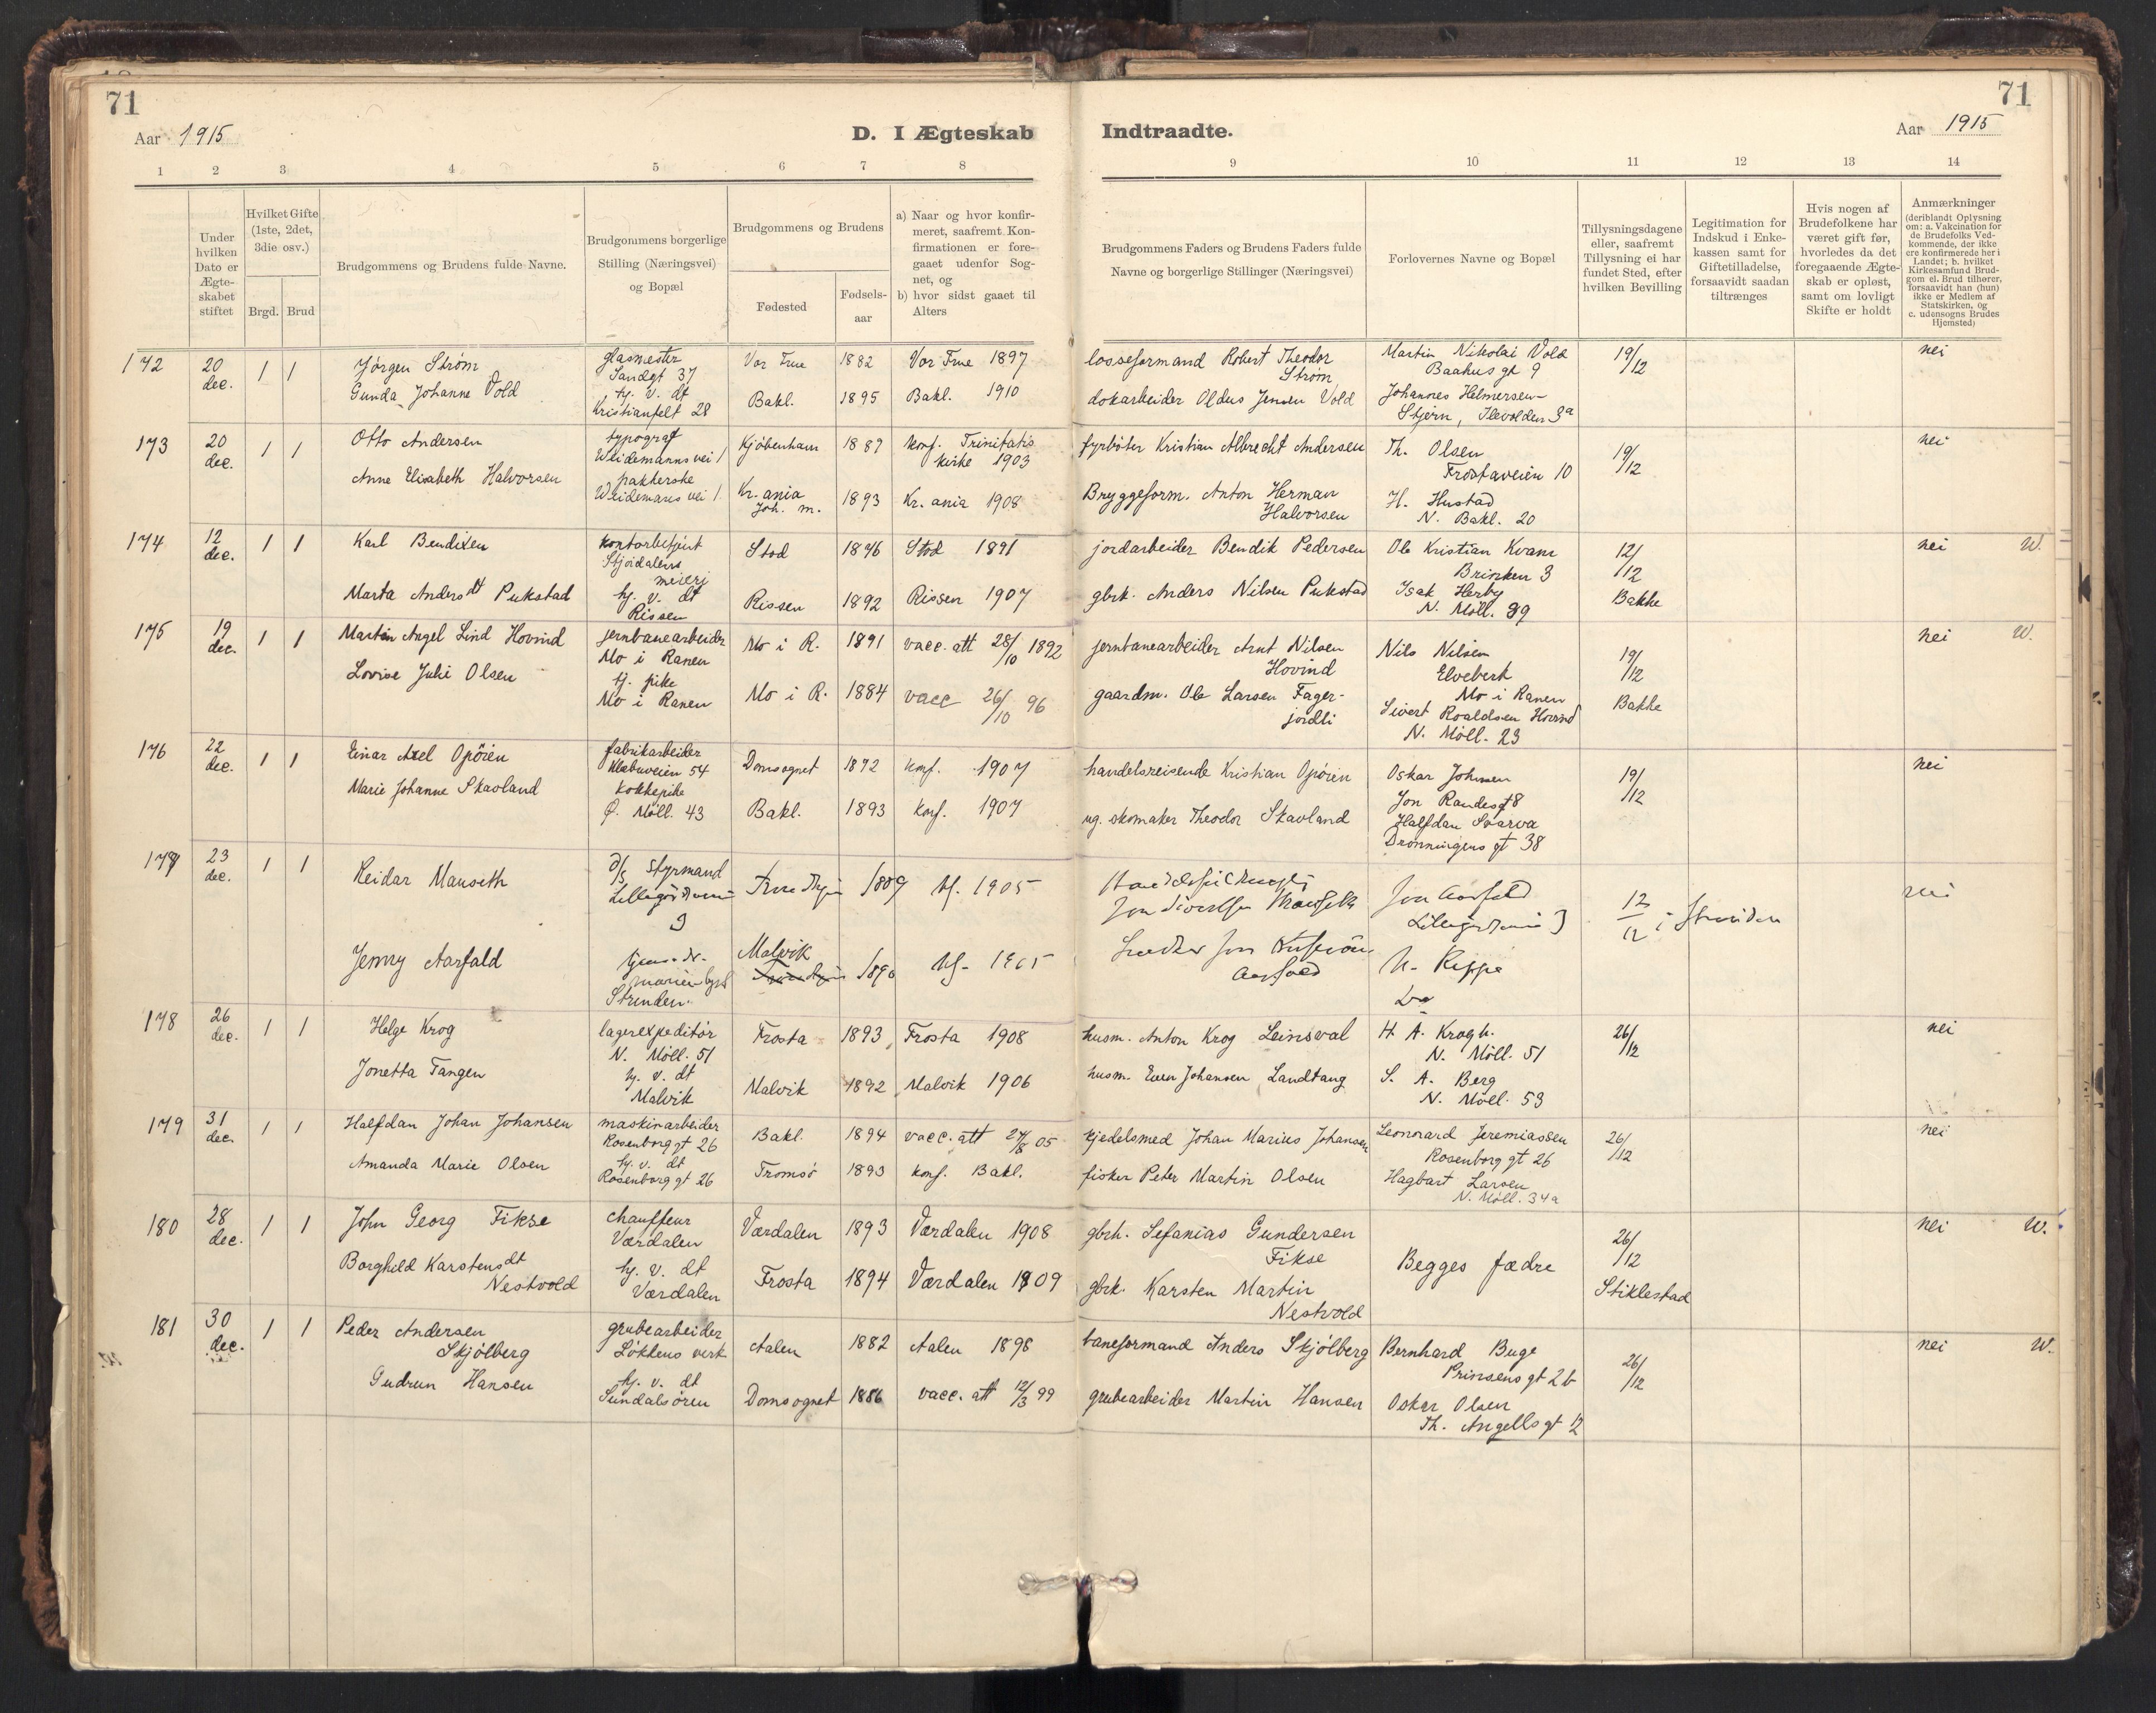 71
71
Aar 1915
D. I Ægteskab Indtraadte.
Aar 1915
1 2 3 4 5 6 7 8 9 10 11 12 13 14
Under hvilken Dato er Ægteskabet stiftet
Hvilket Gifte (1ste, 2det, 3die osv.)
Brgd. Brud
Brudgommens og Brudens fulde Navne.
Brudgommens borgerlige Stilling (Næringsvei) og Bopæl
Brudgommens og Brudens
Fødested
Fødsels-aar
a) Naar og hvor konfir-
meret, saafremt Kon-
firmationen er fore-
gaaet udenfor Sog-
net, og
b) hvor sidst gaaet til
Alters
Brudgommens Faders og Brudens Faders fulde
Navne og borgerlige Stillinger (Næringsvei)
Forlovernes Navne og Bopæl
Tillysningsdagene
eller, saafremt
Tillysning ei har
fundet Sted, efter
hvilken Bevilling
Legitimation for
Indskud i Enke-
kassen samt for
Giftetilladelse,
forsaavidt saadan
tiltrænges
Hvis nogen af
Brudefolkene har
været gift før,
hvorledes da det
foregaaende Ægte-
skab er opløst,
samt om lovligt
Skifte er holdt
Anmærkninger
(deriblandt Oplysning
om: a. Vakcination for
de Brudefolks Ved-
kommende, der ikke
ere konfirmerede her i
Landet; b. hvilket
Kirkesamfund Brud-
gom el. Brud tilhører,
forsaavidt han (hun)
ikke er Medlem af
Statskirken, og
c. udensogns Brudes
Hjemsted)
172 20 dec. 1 1
Jørgen Strøm
Gunda Johanne Vold
glasmester
Sandgt 37
hj. v. dt
Kristianfelt 28
Vor Frue 1882 Vor Frue 1897
Bakl. 1895 Bakl. 1910
losseformand Robert Theodor
Strøm
dokarbeider Oldus Jensen Vold
Martin Nikolai Vold
Baahus gt 9
Johannes Helmersen-
Stjern, Ilevolden 3a
19/12
nei
173 20 dec. 1 1
Otto Andersen
Anne Elisabeth Halvorsen
typograf
Weidemanns vei 1
pakkerske
Weidemans vei 1
Kjøbenhavn 1887 Konf. Trinitatis
kirke 1903
Kr.ania
Joh. m. 1893 Kr.ania 1908
fyrbøter Kristian Albrecht Andersen
Bryggeform. Anton Herman
Halvorsen
Th. Olsen
Frostaveien 10
H. Hustad
N. Bakl. 20
19/12
nei
174 12 dec. 1 1
Karl Bendixen
Marta Andersdt Pukstad
kontorbetjent
Stjørdalens
meieri
hj. v. dt
Rissen
Stod 1876 Stod 1891
Rissen 1892 Rissen 1907
jordarbeider Bendik Pedersen
gbrk. Anders Nilsen Pukstad
Ole Kristian Kvam
Brinken 3
Isak Herby
N. Møll. 39
12/12
Bakke
nei W.
175 19 dec. 1 1
Martin Angel Lind Hovind
Lovise Julie Olsen
jernbanearbeider
Mo i Ranen
tj. pike
Mo i Ranen
Mo i R. 1891 vacc. att 28/10 1892
Mo i R. 1884 vacc 26/10 96
jernbanearbeider Arnt Nilsen
Hovind
gaardm. Ole Larsen Fager-
jordli
Nils Nilsen
Elvebert
Mo i Ranen
Sivert Roaldsen Hovind
N. Møll. 23
19/12
Bakke
nei W.
176 22 dec. 1 1
Einar Axel Opøien
Marie Johanne Skavland
fabrikarbeider
Klæbuveien 54
kokkepike
Ø. Møll. 43
Domsognet 1892 konf. 1907
Bakl. 1893 konf. 1907
handelsreisende Kristian Opøien
ug. skomaker Theodor Skavland
Oskar Johnsen
Jon Raudes gt 8
Halfdan Svarva
Dronningens gt 38
19/12
nei
177 23 dec. 1 1
Reidar Mauseth
Jenny Aarfald
d/s styrmand
3
Strinden
1889 kf. 1905
Malvik
1890 kf. 1905
Aarfald
Jon Aarfald
3
Do
12/12 i Strinden
nei
178 26 dec. 1 1
Helge Krog
Jonetta Tangen
lagerexpeditør
N. Møll. 51
hj. v. dt
Malvik
Frosta 1893 Frosta 1908
Malvik 1892 Malvik 1906
husm. Anton Krog Leinsval
husm. Even Johansen Landtang
H. A. Krogh.
N. Møll. 51
S. A. Berg
N. Møll. 53
26/12
nei
179 31 dec. 1 1
Halfdan Johan Johansen
Amanda Marie Olsen
maskinarbeider
Rosenborg gt 26
hj. v. dt
Rosenborg gt 26
Bakl. 1894 vacc. att 27/8 05
Tromsø 1893 konf. Bakl.
kjedelsmed Johan Marius Johansen
fisker Peter Martin Olsen
Leonard Jeremiassen
Rosenborg gt 26
Hagbart Larsen
N. Møll. 34a
26/12
nei
180 28 dec. 1 1
John Georg Fikse
Borghild Karstensdt
Nestvold
chauffeur
Værdalen
hj. v. dt
Værdalen
Værdalen 1893 Værdalen 1908
Frosta 1894 Værdalen 1909
gbrk. Sefanias Gundersen
Fikse
gbrk. Karsten Martin
Nestvold
Begges fædre
26/12
Stiklestad
nei W.
181 30 dec. 1 1
Peder Andersen
Skjølberg
Gudrun Hansen
grubearbeider
Løkkens verk
hj. v. dt
Sundalsøren
Aalen 1882 Aalen 1898
Domsognet 1886 vacc. att 12/3 99
baneformand Anders Skjølberg
grubearbeider Martin Hansen
Bernhard Buge
Prinsens gt 2b
Oskar Olsen
Th. Angells gt 12
26/12
nei W.